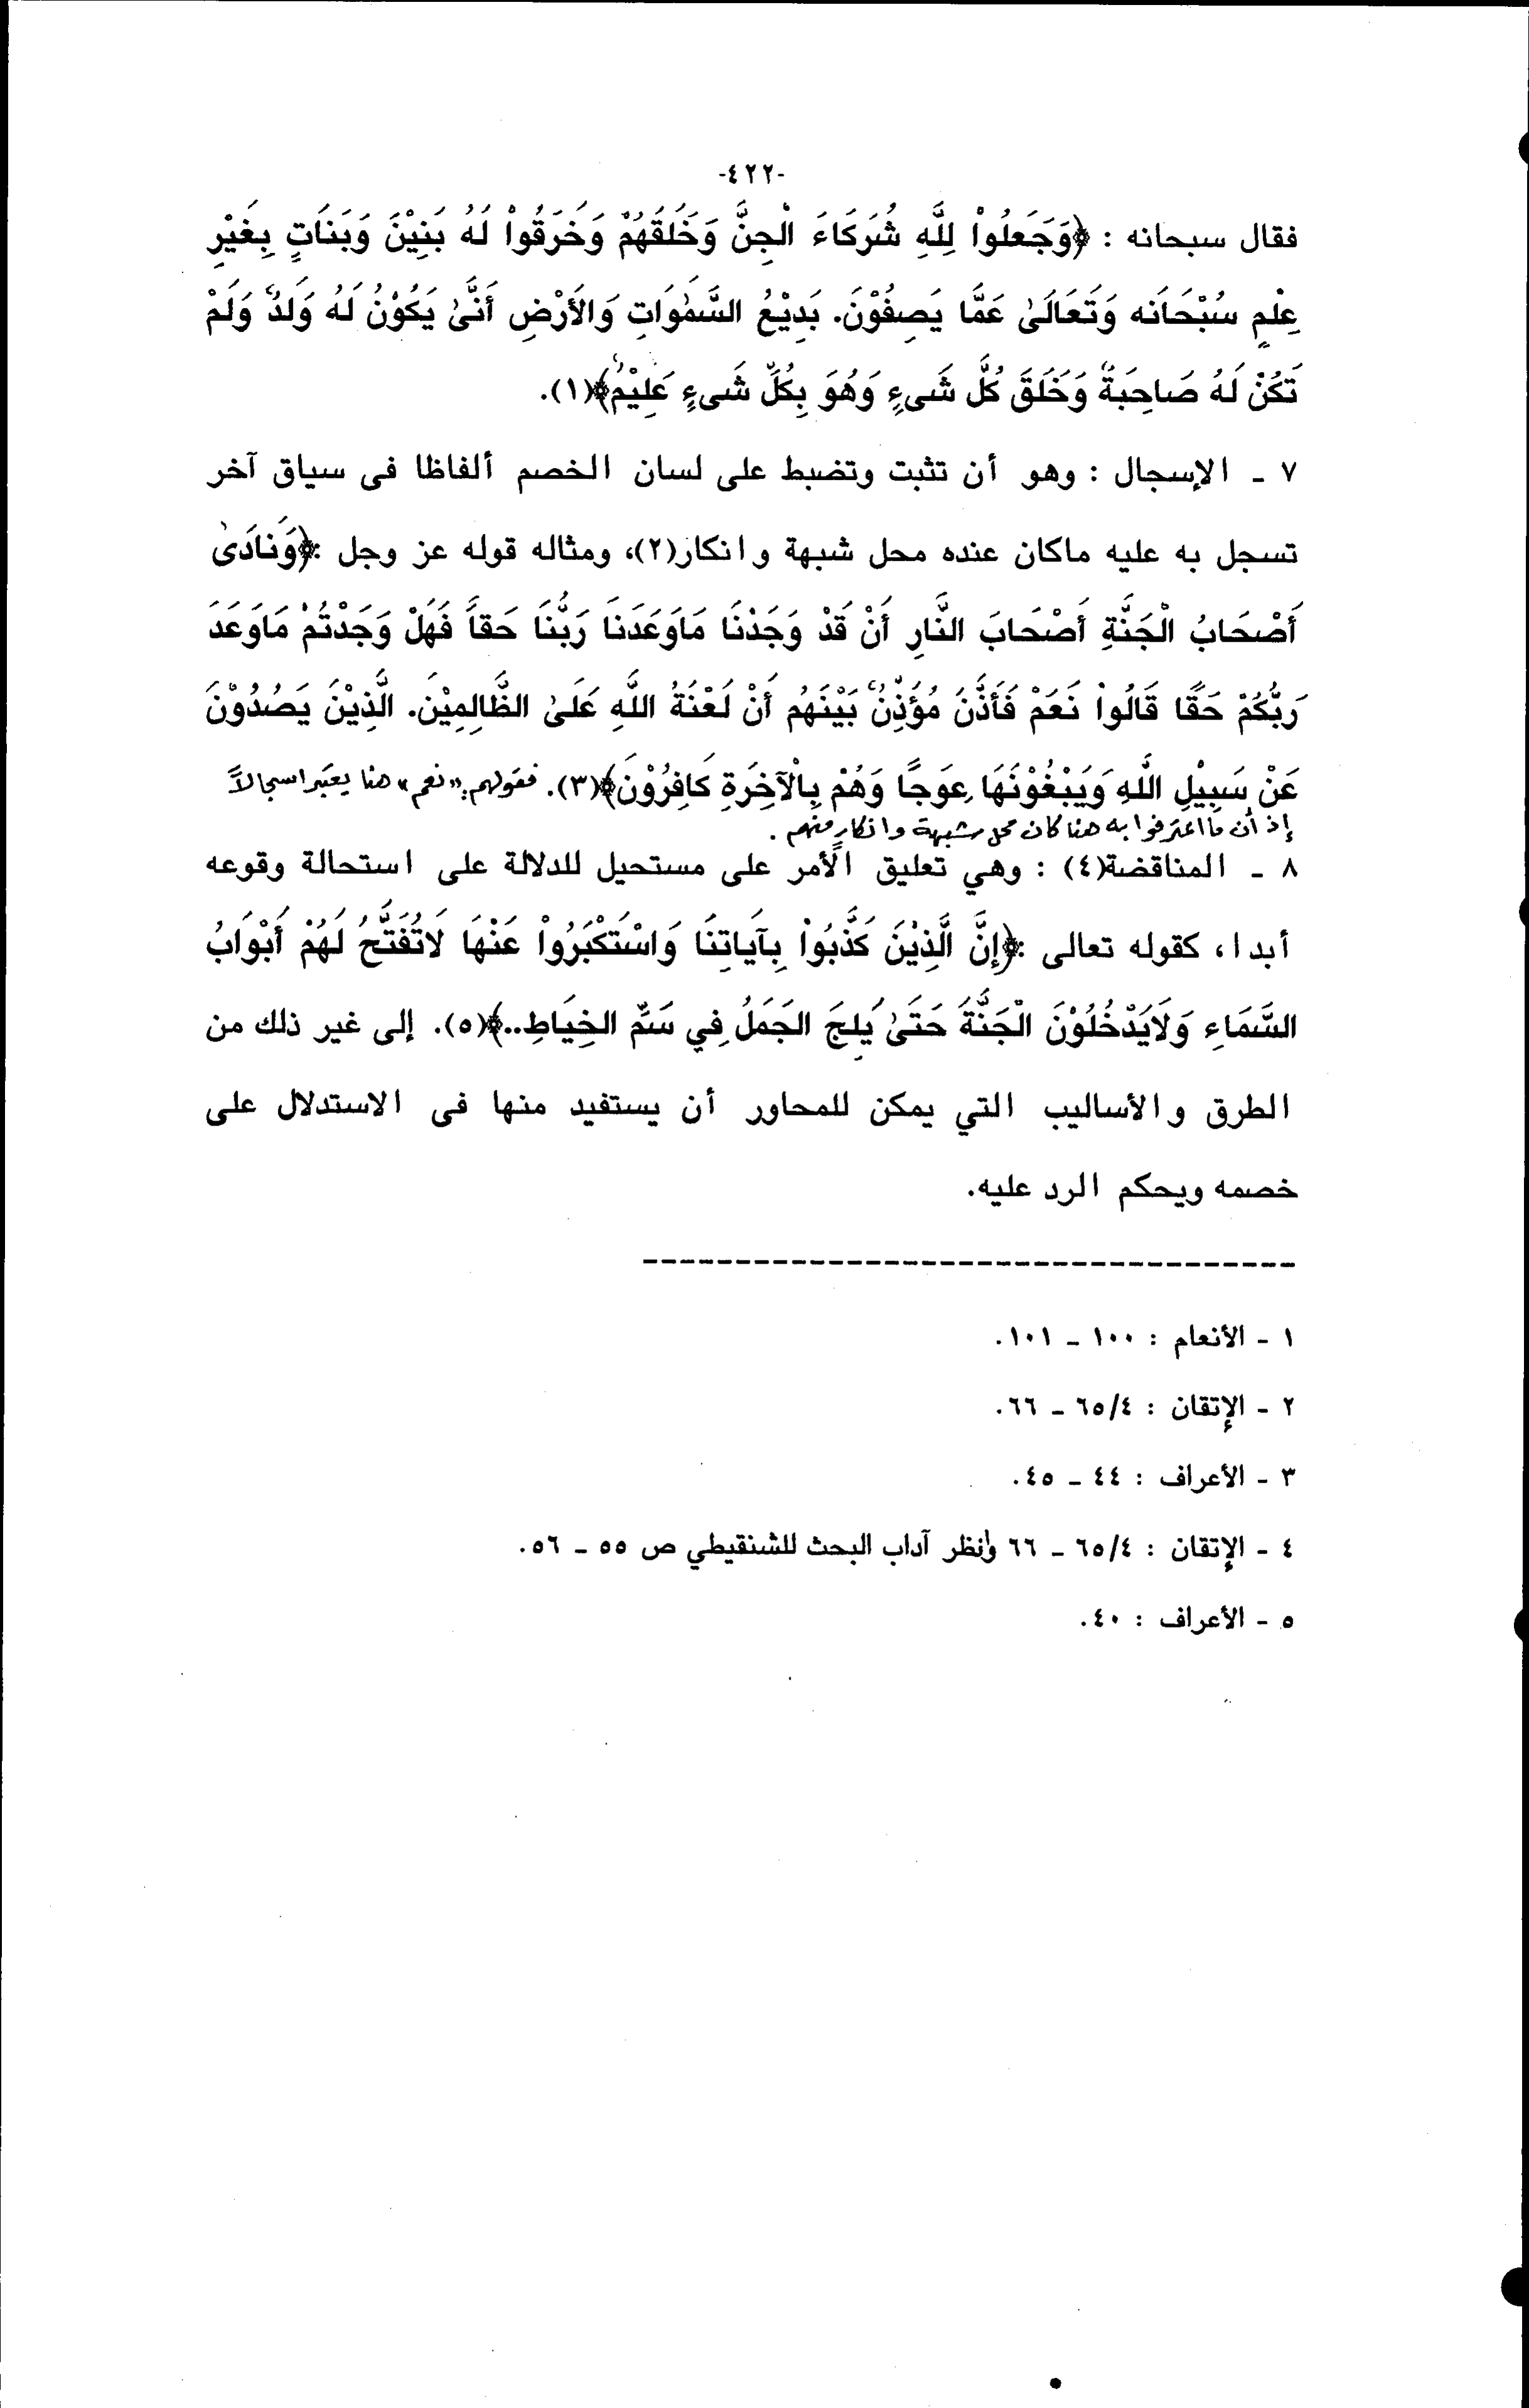 -٤٢٢-
فقال سبحانه : ﴿وَجَعَلُواْ لِلَّهِ شُرَكَاءَ الْجِنَّ وَخَلَقَهُمْ وَخَرَقُواْ لَهُ بَنِيْنَ وَبَنَاتٍ بِغَيْرِ
عِلْمٍ سُبْحَانَه وَتَعَالَىٰ عَمَّا يَصِفُوْنَ. بَدِيْعُ السَّمٰوَاتِ وَالأَرْضِ أَنَّىٰ يَكُوْنُ لَهُ وَلَدٌ وَلَمْ
تَكُنْ لَهُ صَاحِبَةٌ وَخَلَقَ كُلَّ شَىءٍ وَهُوَ بِكُلِّ شَىءٍ عَلِيْمٌ﴾(١).
٧ ـ الإسجال : وهو أن تثبت وتضبط على لسان الخصم ألفاظا فى سياق آخر
تسجل به عليه ماكان عنده محل شبهة وانكار(٢)، ومثاله قوله عز وجل :﴿وَنادَىٰ
أَصْحَابُ الْجَنَّةِ أَصْحَابَ النَّارِ أَنْ قَدْ وَجَدْنَا مَاوَعَدَنَا رَبُّنَا حَقاً فَهَلْ وَجَدْتُمْ مَاوَعَدَ
رَبُّكُمْ حَقًا قَالُواْ نَعَمْ فَأَذَّنَ مُؤَذِّنٌ بَيْنَهُم أَنْ لَعْنَةُ اللَّهِ عَلَىٰ الظَّالِمِيْنَ. الَّذِيْنَ يَصُدُوْنَ
عَنْ سَبِيْلِ اللَّهِ وَيَبْغُوْنَهَا عِوَجًا وَهُمْ بِالْآخِرَةِ كَافِرُوْنَ﴾(٣). فقولهم: «نعم» هنا يعتبر اسجالاً
إذ أن ما اعترفوا به هنا كان محل شبهة وانكار منهم .
٨ ـ المناقضة(٤) : وهي تعليق الأمر على مستحيل للدلالة على استحالة وقوعه
أبدا، كقوله تعالى :﴿إِنَّ الَّذِيْنَ كَذَّبُواْ بِآيَاتِنَا وَاسْتَكْبَرُواْ عَنْهَا لَاتُفَتَّحُ لَهُمْ أَبْوَابُ
السَّمَاءِ وَلَايَدْخُلُوْنَ الْجَنَّةَ حَتَىٰ يَلِجَ الجَمَلُ فِي سَمِّ الخِيَاطِ..﴾(٥). إلى غير ذلك من
الطرق والأساليب التي يمكن للمحاور أن يستفيد منها فى الاستدلال على
خصمه ويحكم الرد عليه.
١ - الأنعام : ١٠٠ ـ ١٠١.
٢ - الإتقان : ٦٥/٤ ـ ٦٦.
٣ - الأعراف : ٤٤ ـ ٤٥.
٤ - الإتقان : ٦٥/٤ ـ ٦٦ وأنظر آداب البحث للشنقيطي ص ٥٥ ـ ٥٦.
٥ - الأعراف : ٤٠.